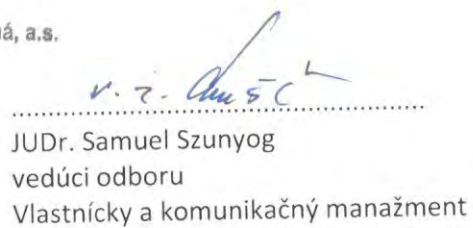 á, a.s.
v. z.
JUDr. Samuel Szunyog
vedúci odboru
Vlastnícky a komunikačný manažment